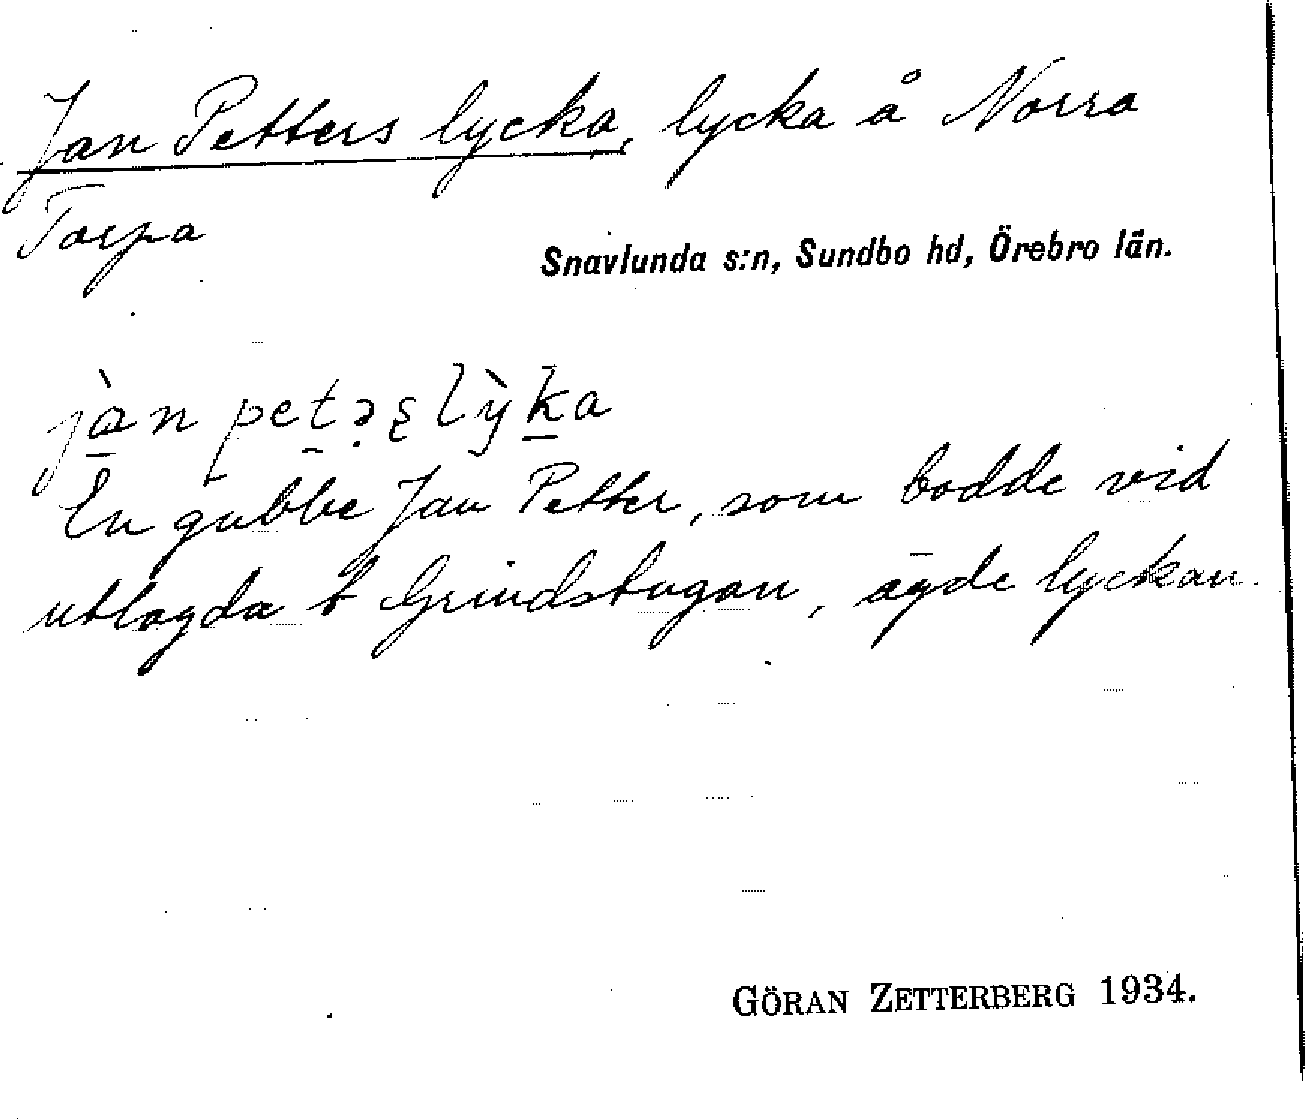 Jan Petters lycka, lycka å Norra
Torpa
Snavlunda s:n, Sundbo hd, Örebro län.
jàn petəʂlỳka
En gubbe Jan Petter, som bodde vid
utlagda t Grindstugan, ägde lyckan.
GÖRAN ZETTERBERG 1934.